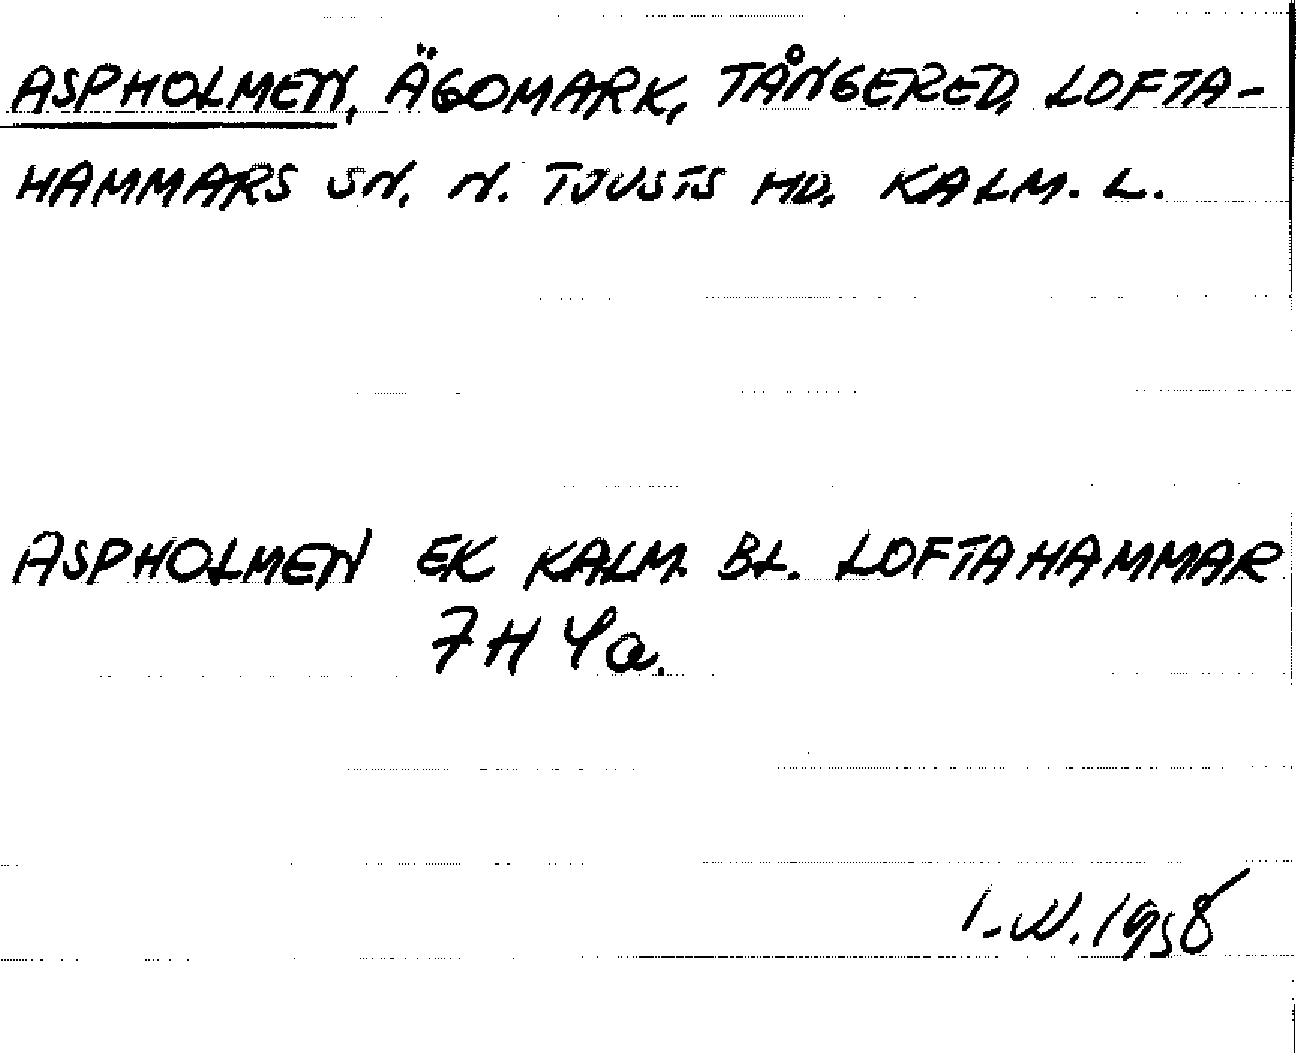 ASPHOLMEN, ÄGOMARK, TÅNGERED, LOFTA-
HAMMARS SN. N. TJUSTS HD. KALM. L.
ASPHOLMEN EK KALM. BL. LOFTAHAMMAR
7H 4a.
I.W. 1958